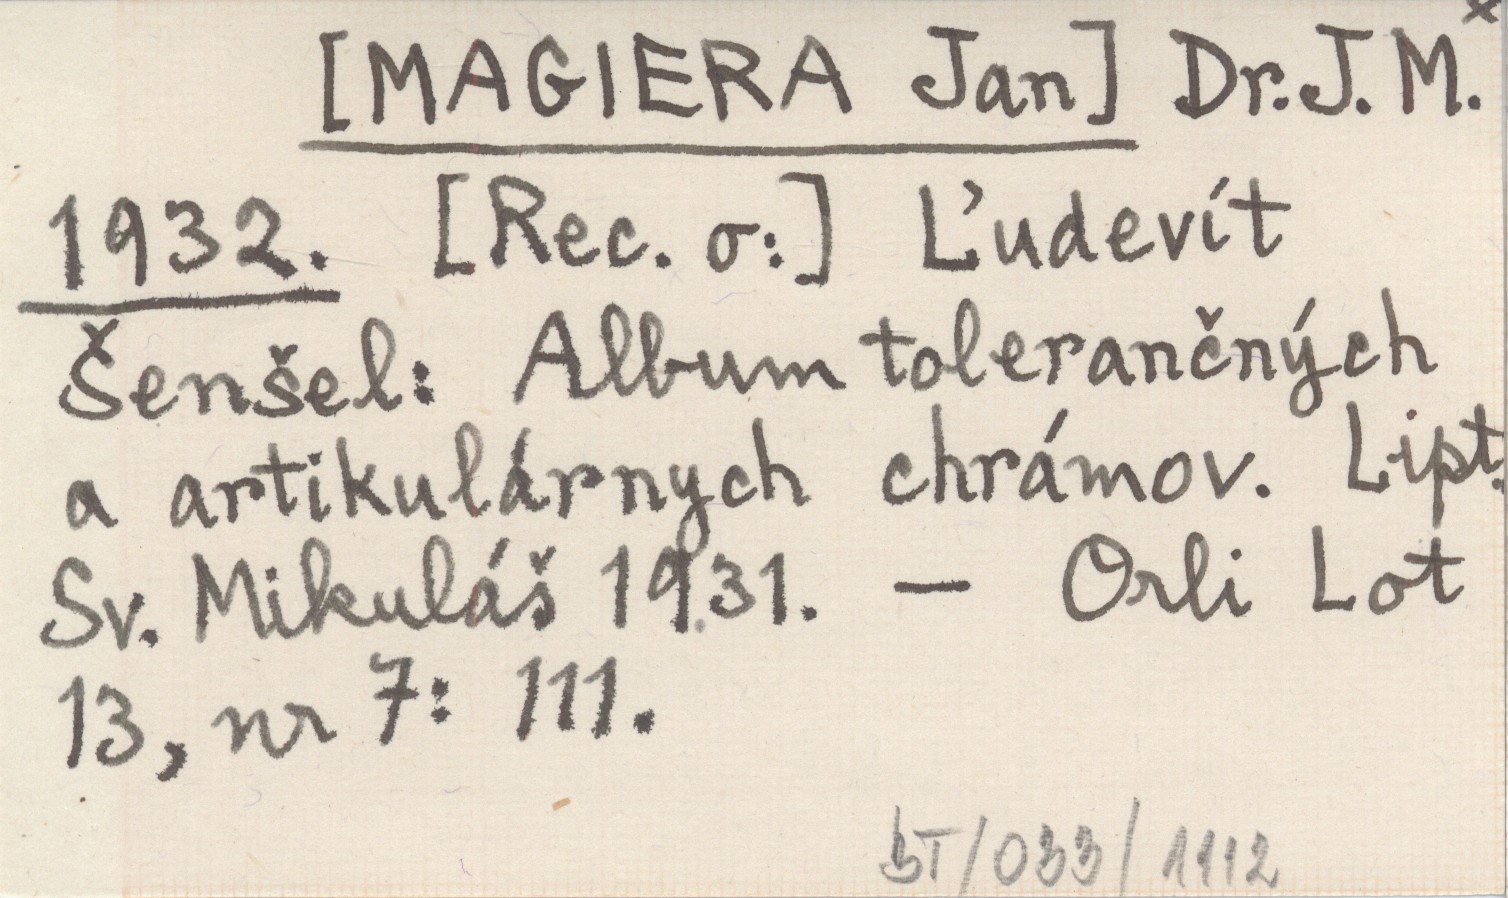 [MAGIERA Jan] Dr. J. M. x
1932. [Rec. o:] Ľudevít
Šenšel: Album tolerančných
a artikulárnych chrámov. Lipt.
Sv. Mikuláš 1931. — Orli Lot
13, nr 7: 111.
BT/033/1112